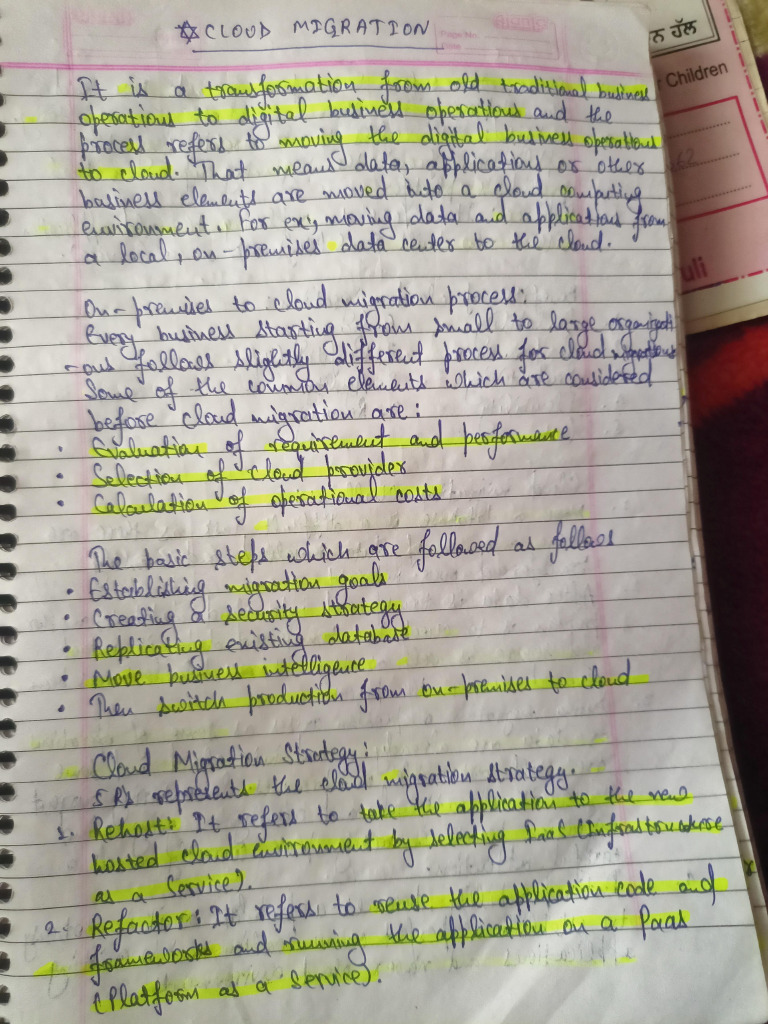 CLOUD MIGRATION
It is a transformation from old traditional business
operations to digital business operations and the
process refers to moving the digital business operations
to cloud. That means data, applications or other
business elements are moved into a cloud computing
environment. For ex:, moving data and applications from
a local, on-premises data center to the cloud.
On-premises to cloud migration process:
Every business starting from small to large organizati
-ons follows slightly different process for cloud migrations
Some of the common elements which are considered
before cloud migration are:
• Evaluation of requirement and performance
• Selection of cloud provider
• Calculation of operational costs
The basic steps which are followed as follows
• Establishing migration goals
• Creating a security strategy
• Replicating existing database
• Move business intelligence
• Then switch production from on-premises to cloud
Cloud Migration Strategy:
5 R's represents the cloud migration strategy.
1. Rehost: It refers to take the application to the new
hosted cloud environment by selecting IaaS (Infrastructure
as a Service).
2. Refactor: It refers to reuse the application code and
frameworks and running the application on a PaaS
(Platform as a Service).
ਨ ਹੱਲ
Children
62
uli